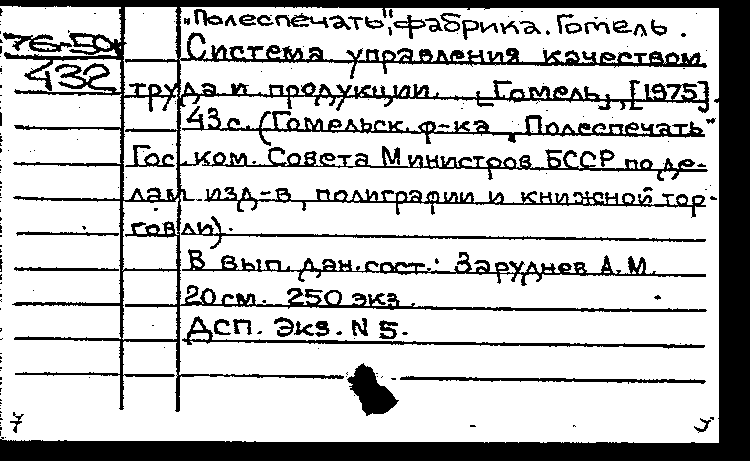 „Полеспечать", фабрика. Гомель.
76-50
432
Система управления качеством
труда и продукции. [Гомель], [1975].
43 с. (Гомельск. ф-ка „Полеспечать"
Гос. ком. Совета Министров БССР по де-
лам изд-в, полиграфии и книжной тор-
говли).
В вып. дан. сост.: Заруднев А.М.
20 см. 250 экз.
ДСП. Экз. N 5.